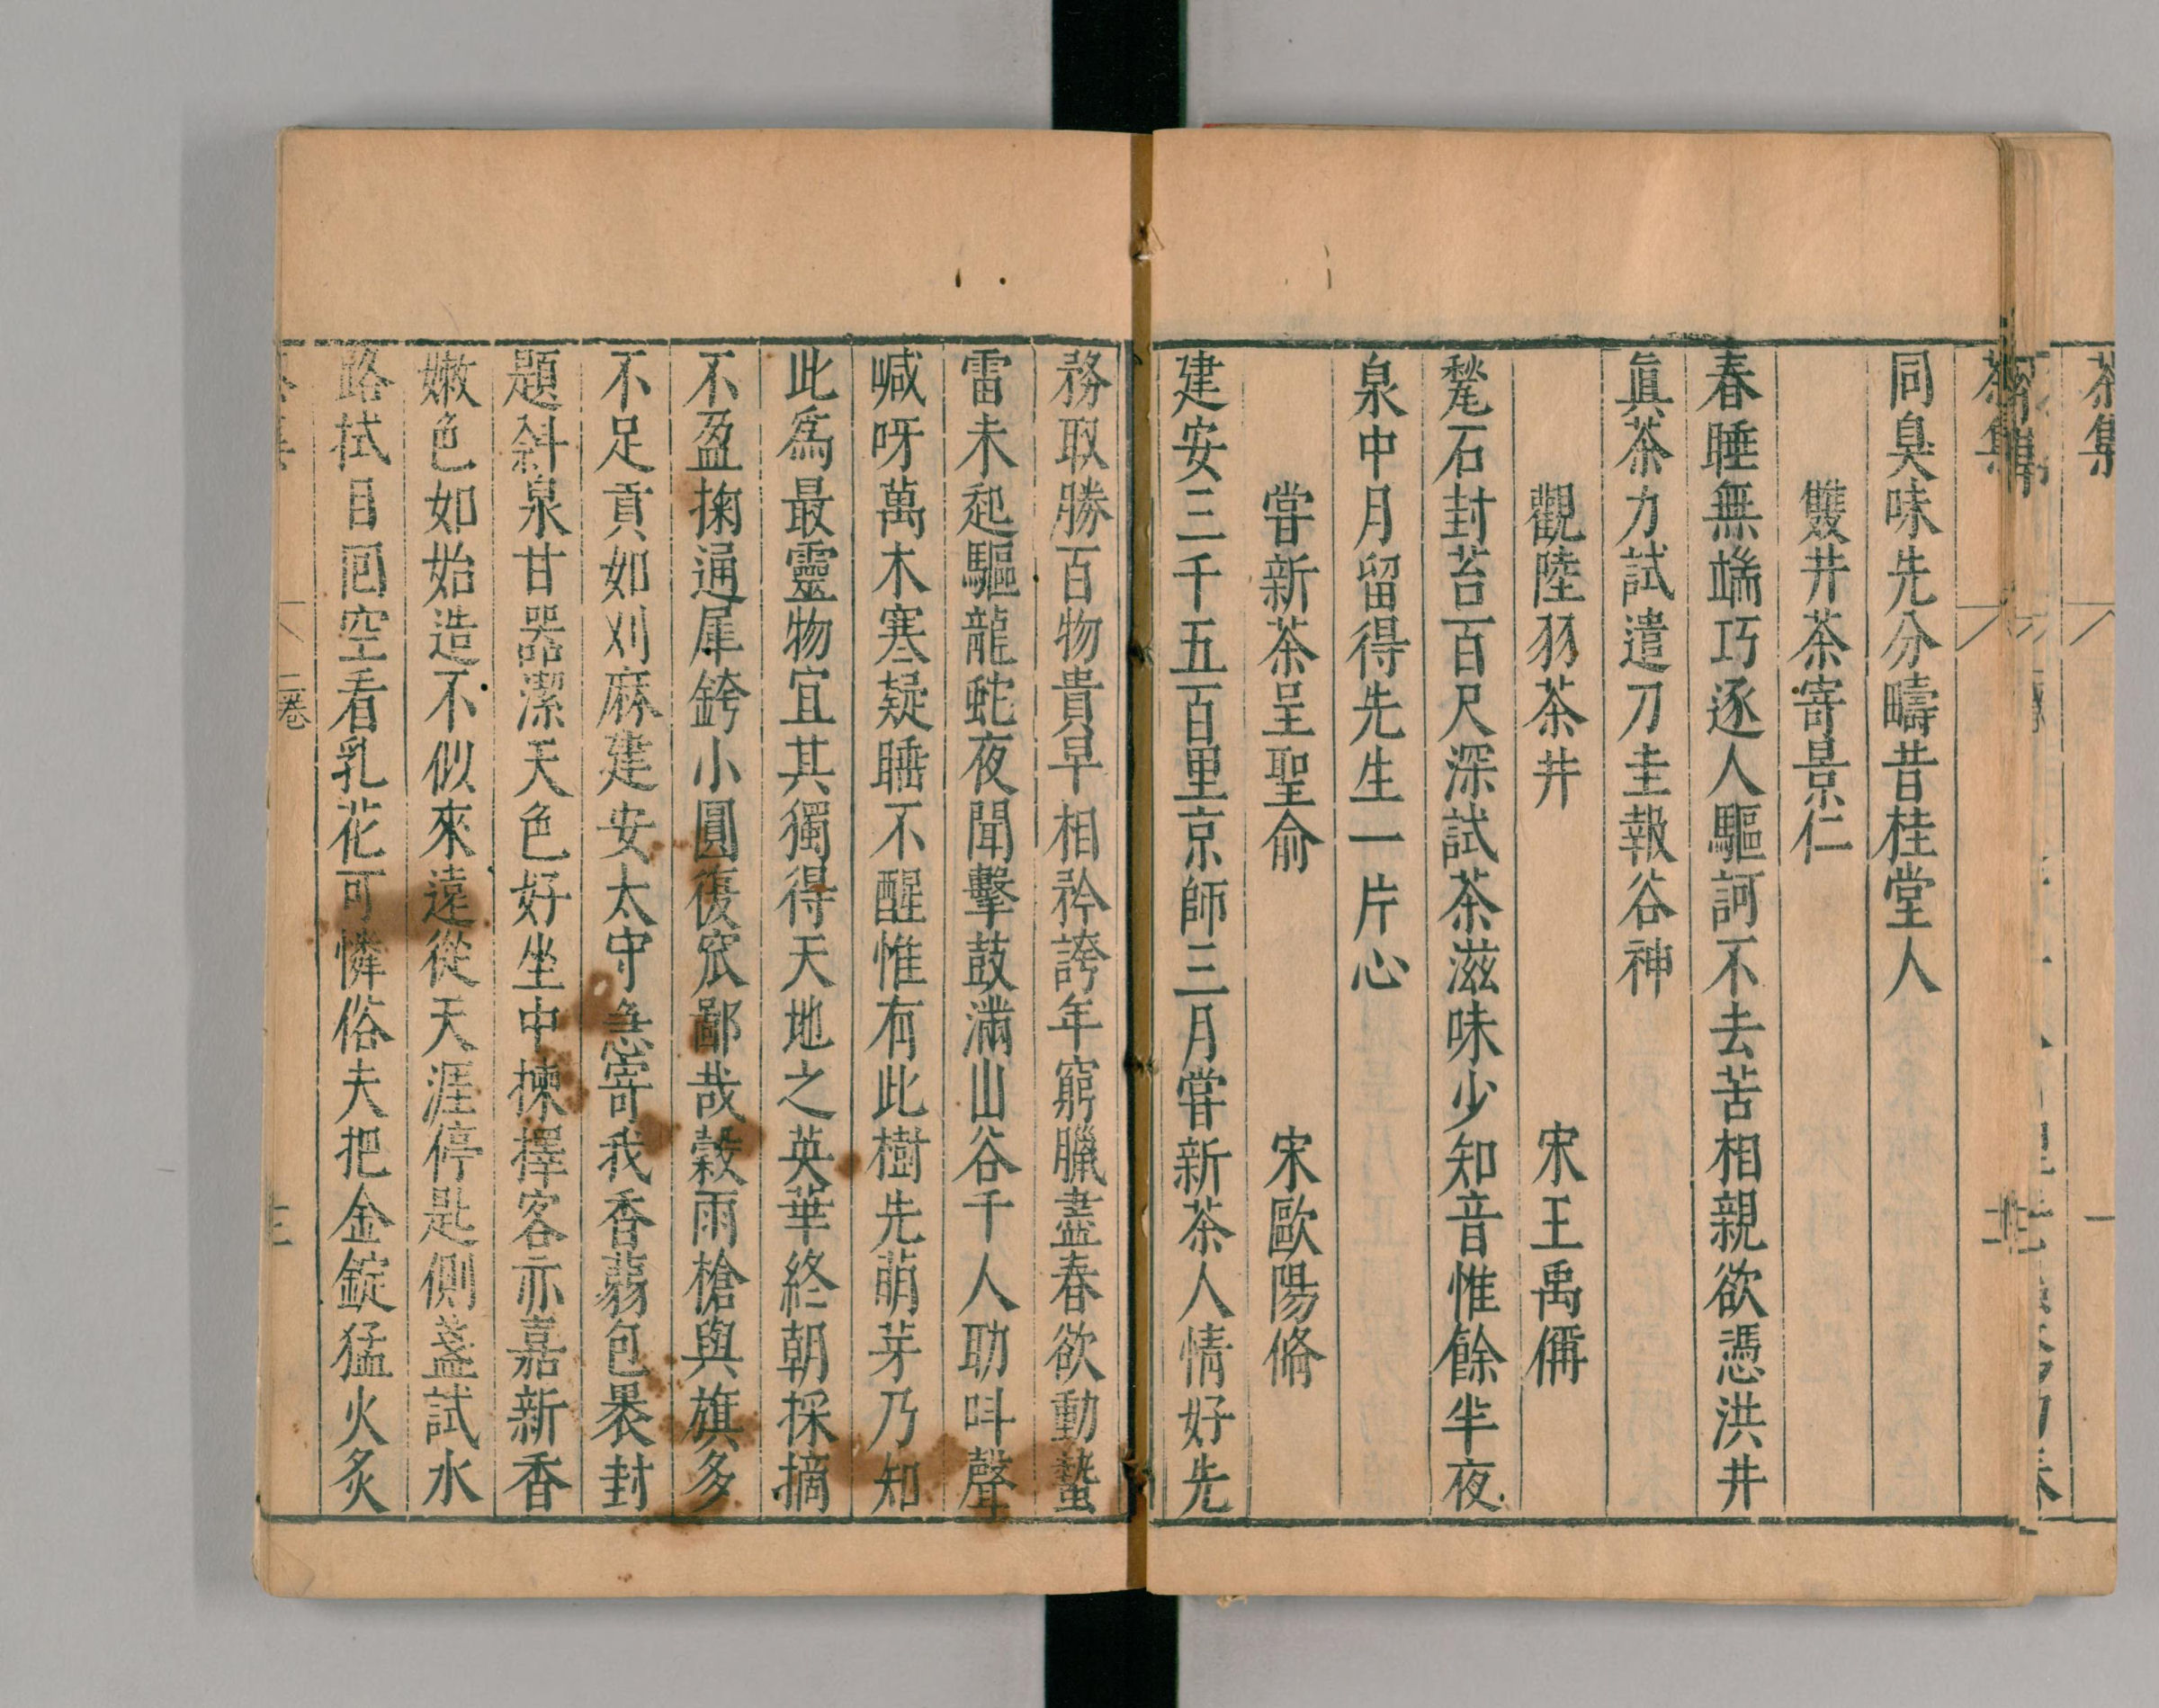 茶集
茶集
同臭味先分疇昔桂堂人
雙井茶寄景仁
春睡無端巧逐人驅訶不去苦相親欲憑洪井
眞茶力試遣刀圭報谷神
觀陸羽茶井 宋王禹偁
甃石封苔百尺深試茶滋味少知音惟餘半夜
泉中月留得先生一片心
嘗新茶呈聖俞 宋歐陽脩
建安三千五百里京師三月嘗新茶人情好先
務取勝百物貴早相矜誇年窮臘盡春欲動蟄
雷未起驅龍蛇夜聞擊鼓滿山谷千人助呌聲
喊呀萬木寒凝睡不醒惟有此樹先萌芽乃知
此爲最靈物宜其獨得天地之英華終朝採摘
不盈掬通犀銙小圓復窊鄙哉穀雨槍與旗多
不足貢如刈麻建安太守急寄我香蒻包裹封
題斜泉甘器潔天色好坐中揀擇客亦嘉新香
嫩色如始造不似來遠從天涯停匙側盞試水
路拭目囬空看乳花可憐俗夫把金錠猛火炙
二卷